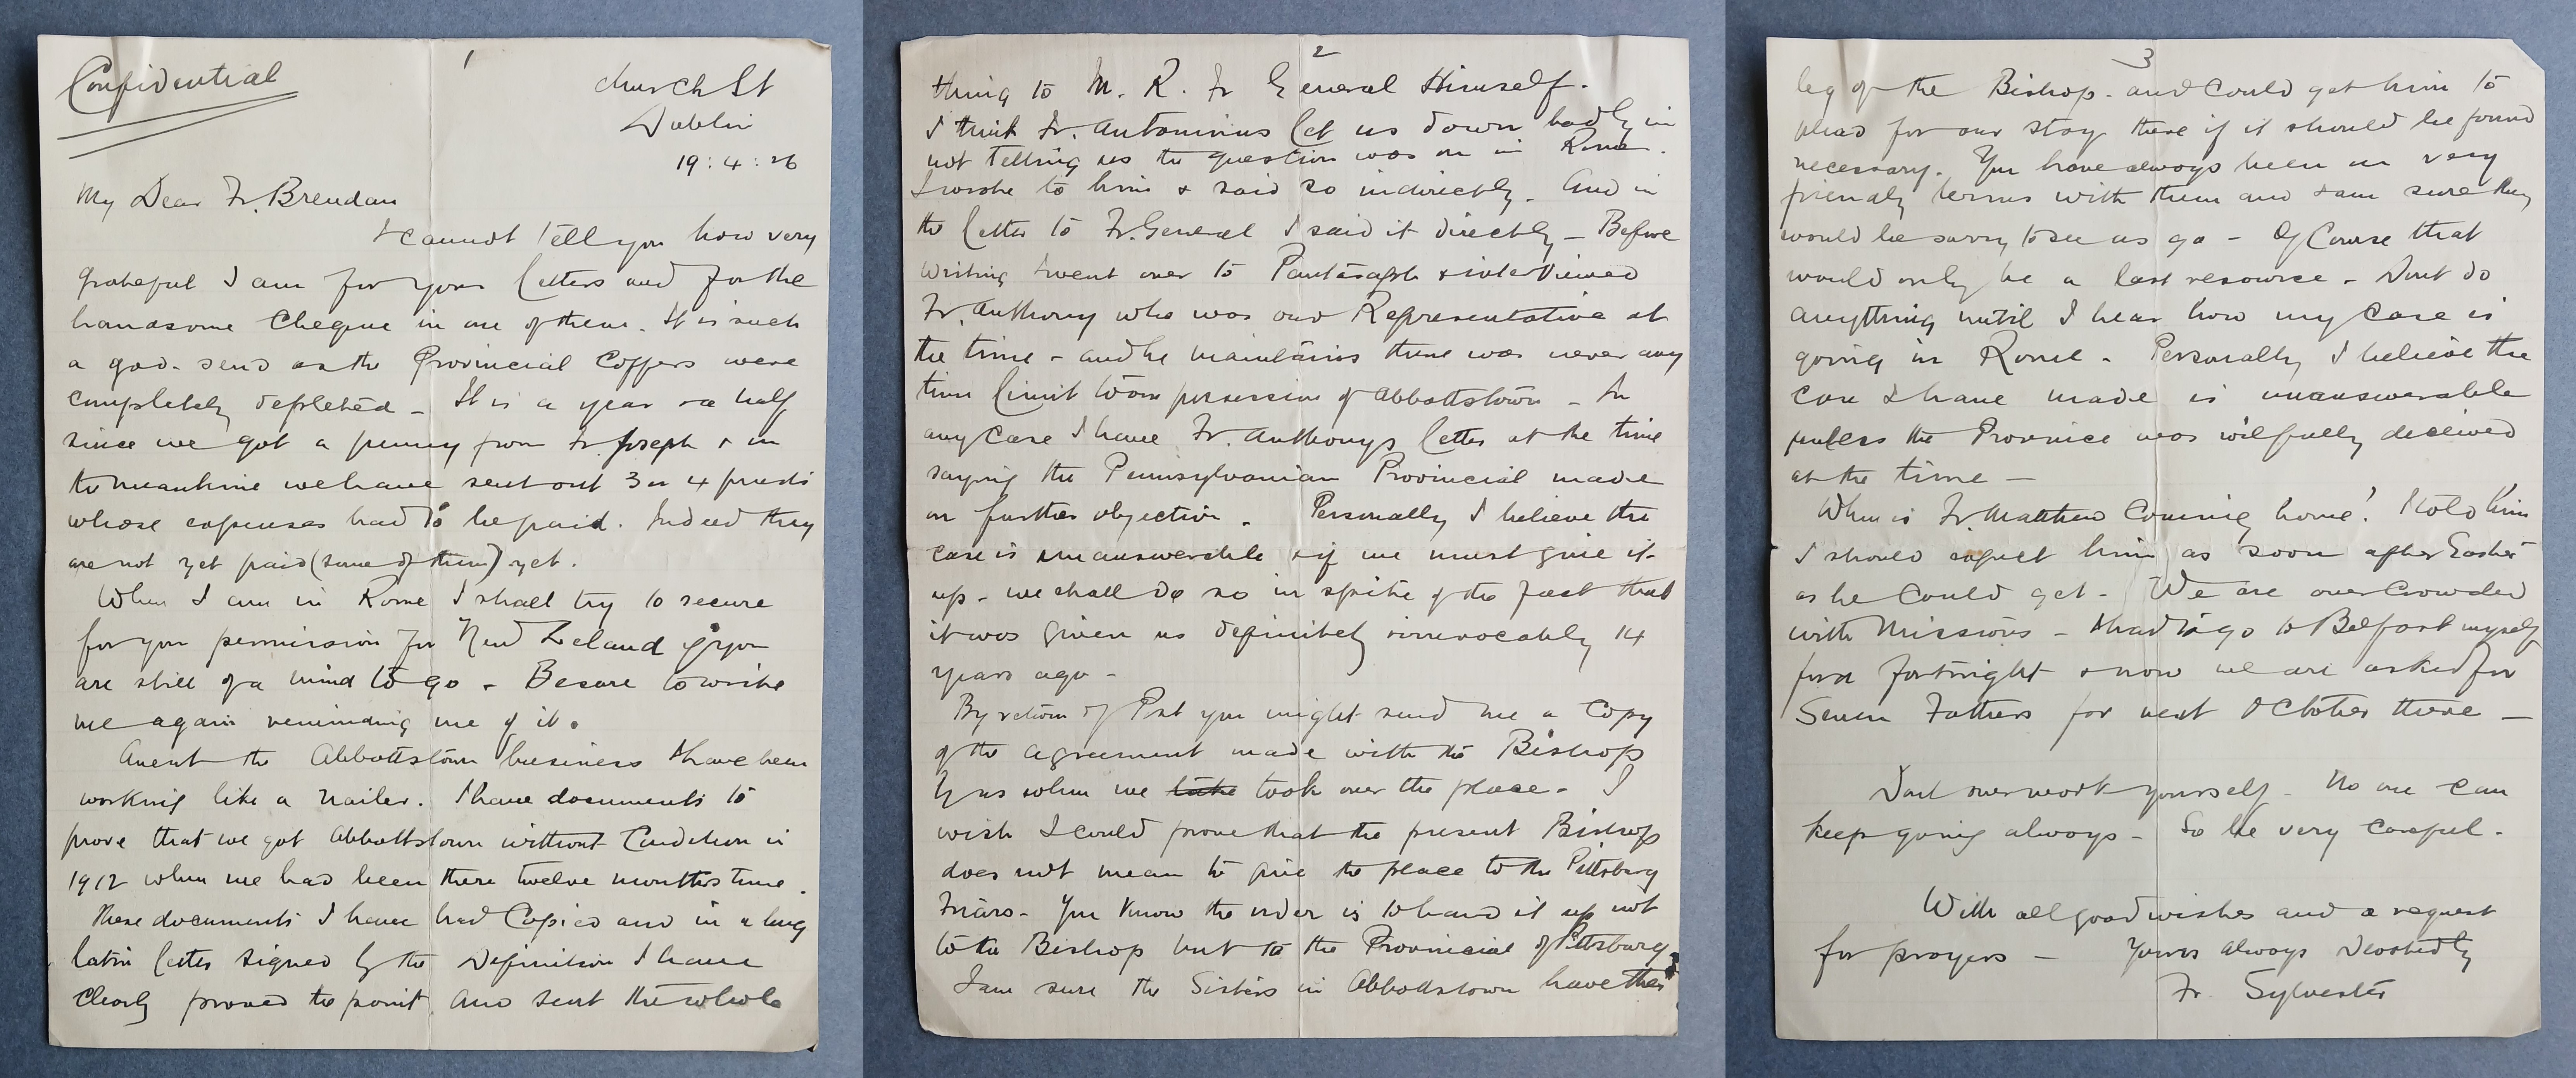 1
Confidential
Church St
Dublin
19:4:26
My Dear Fr. Brendan
I cannot tell you how very
grateful I am for your letters and for the
handsome Cheque in one of them. It is such
a god-send as the Provincial Coffers were
completely depleted - It is a year & a half
since we got a penny from Fr. Joseph & in
the meantime we have sent out 3 or 4 priests
whose expenses had to be paid. Indeed they
are not yet paid (some of them) yet.
When I am in Rome I shall try to secure
for you permission for New Zeland if you
are still of a mind to go - Be sure to write
me again reminding me of it.
Anent the Abbottstown business I have been
working like a nailer. I have documents to
prove that we got Abbottstown without Condition in
1912 when we had been there twelve months time.
These documents I have had Copied and in a long
latin letter signed by the Definition I have
clearly proved the point and sent the whole
2
thing to M. R. Fr General Himself.
I think Fr. Antoninus let us down badly in
not telling us the question was on in Rome.
I wrote to him & said so indirectly. And in
the letter to Fr. General I said it directly - Before
writing I went over to Pantasaph & interviewed
Fr. Anthony who was our Representative at
the time - and he maintains there was never any
time limit to our possession of Abbottstown - In
any case I have Fr. Anthonys letter at the time
saying the Pennsylvanian Provincial made
no further objection. Personally I believe the
case is unanswerable & if we must give it
up - we shall do so in spite of the fact that
it was given us definitely irrevocably 14
years ago -
By return of Post you might send me a Copy
of the agreement made with the Bishop
by us when we take took over the place - I
wish I could prove that the present Bishop
does not mean to give the place to the Pittsburg
Friars - You know the order is to hand it up not
to the Bishop but to the Provincial of Pittsburg.
I am sure the Sisters in Abbottstown have the
3
leg of the Bishop - and could get him to
plead for our stay there if it should be found
necessary. You have always been on very
friendly terms with them and I am sure they
would be sorry to see us go - Of Course that
would only be a last resource - Dont do
anything until I hear how my Case is
going in Rome - Personally I believe the
case I have made is unanswerable
unless the Province was wilfully deceived
at the time -
When is Fr. Matthew Coming home? I told him
I should expect him as soon after Easter
as he Could get - We are overCrowded
with Missions - I had to go to Belfast myself
for a fortnight & now we are asked for
Seven Fathers for next October there -
Dont overwork yourself - No one can
keep going always - So be very careful.
With all good wishes and a request
for prayers - Yours always devotedly
Fr. Sylvester